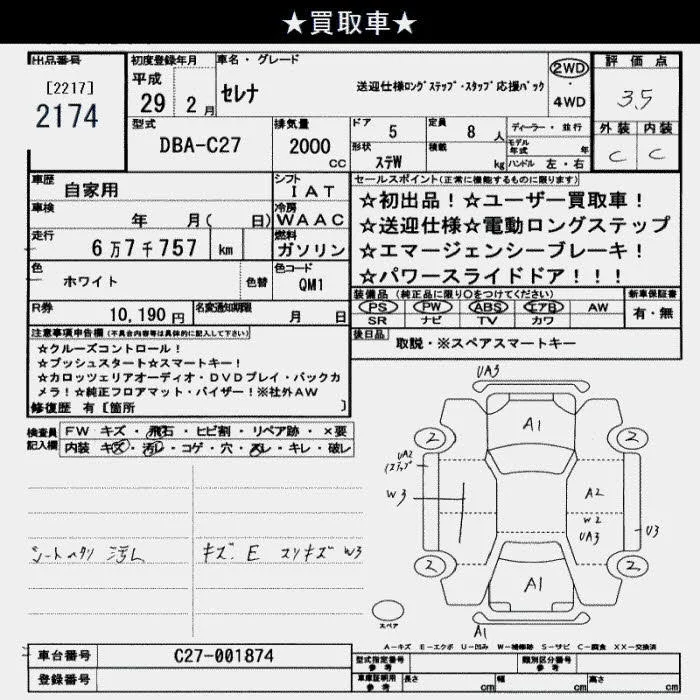 ★買取車★
出品番号
[2217]
2174
初度登録年月
平成
29 2月
車名・グレード
セレナ
送迎仕様ロングステップ・ステップ応援パック
2WD
・
4WD
評価点
3.5
外装 内装
C C
型式
DBA-C27
排気量
2000
cc
ドア 5
定員 8 人
ディーラー・並行
モデル年式 年
形状 ステW
積載 kg
ハンドル 左・右
車歴
自家用
シフト
IAT
車検
年 月( 日)
冷房
WAAC
走行
6万7千757 km
燃料
ガソリン
色
ホワイト
色替
色コード
QM1
R券
10,190円
名変通知期限
月 日
セールスポイント(正常に機能するものに限ります)
☆初出品!☆ユーザー買取車!
☆送迎仕様☆電動ロングステップ
☆エマージェンシーブレーキ!
☆パワースライドドア!!!
装備品 (純正品に限り○をつけてください)
PS PW ABS エアB AW
SR ナビ TV カワ
新車保証書
有・無
後日品
取説・※スペアスマートキー
注意事項申告欄(不具合内容等は具体的に記入して下さい)
☆クルーズコントロール!
☆プッシュスタート☆スマートキー!
☆カロッツェリアオーディオ・DVDプレイ・バックカ
メラ!☆純正フロアマット・バイザー!※社外AW
修復歴 有[箇所 ]
検査員
記入欄
FW キズ・飛石・ヒビ割・リペア跡・×要
内装 キズ・汚レ・コゲ・穴・スレ・キレ・破レ
シートヘタリ 汚レ
キズ. E スリキズ W3
UA3
A1
2
2
UA2
(ステップ
W3
A2
W2
UA3
U3
2
2
A1
スペア
A1
A-キズ E-エクボ U-凹み W-補修跡 S-サビ C-腐食 XX-交換済
車台番号
C27-001874
登録番号
型式指定番号
参考
類別区分番号
参考
車庫証明用
参考
長さ cm
幅 cm
高さ cm